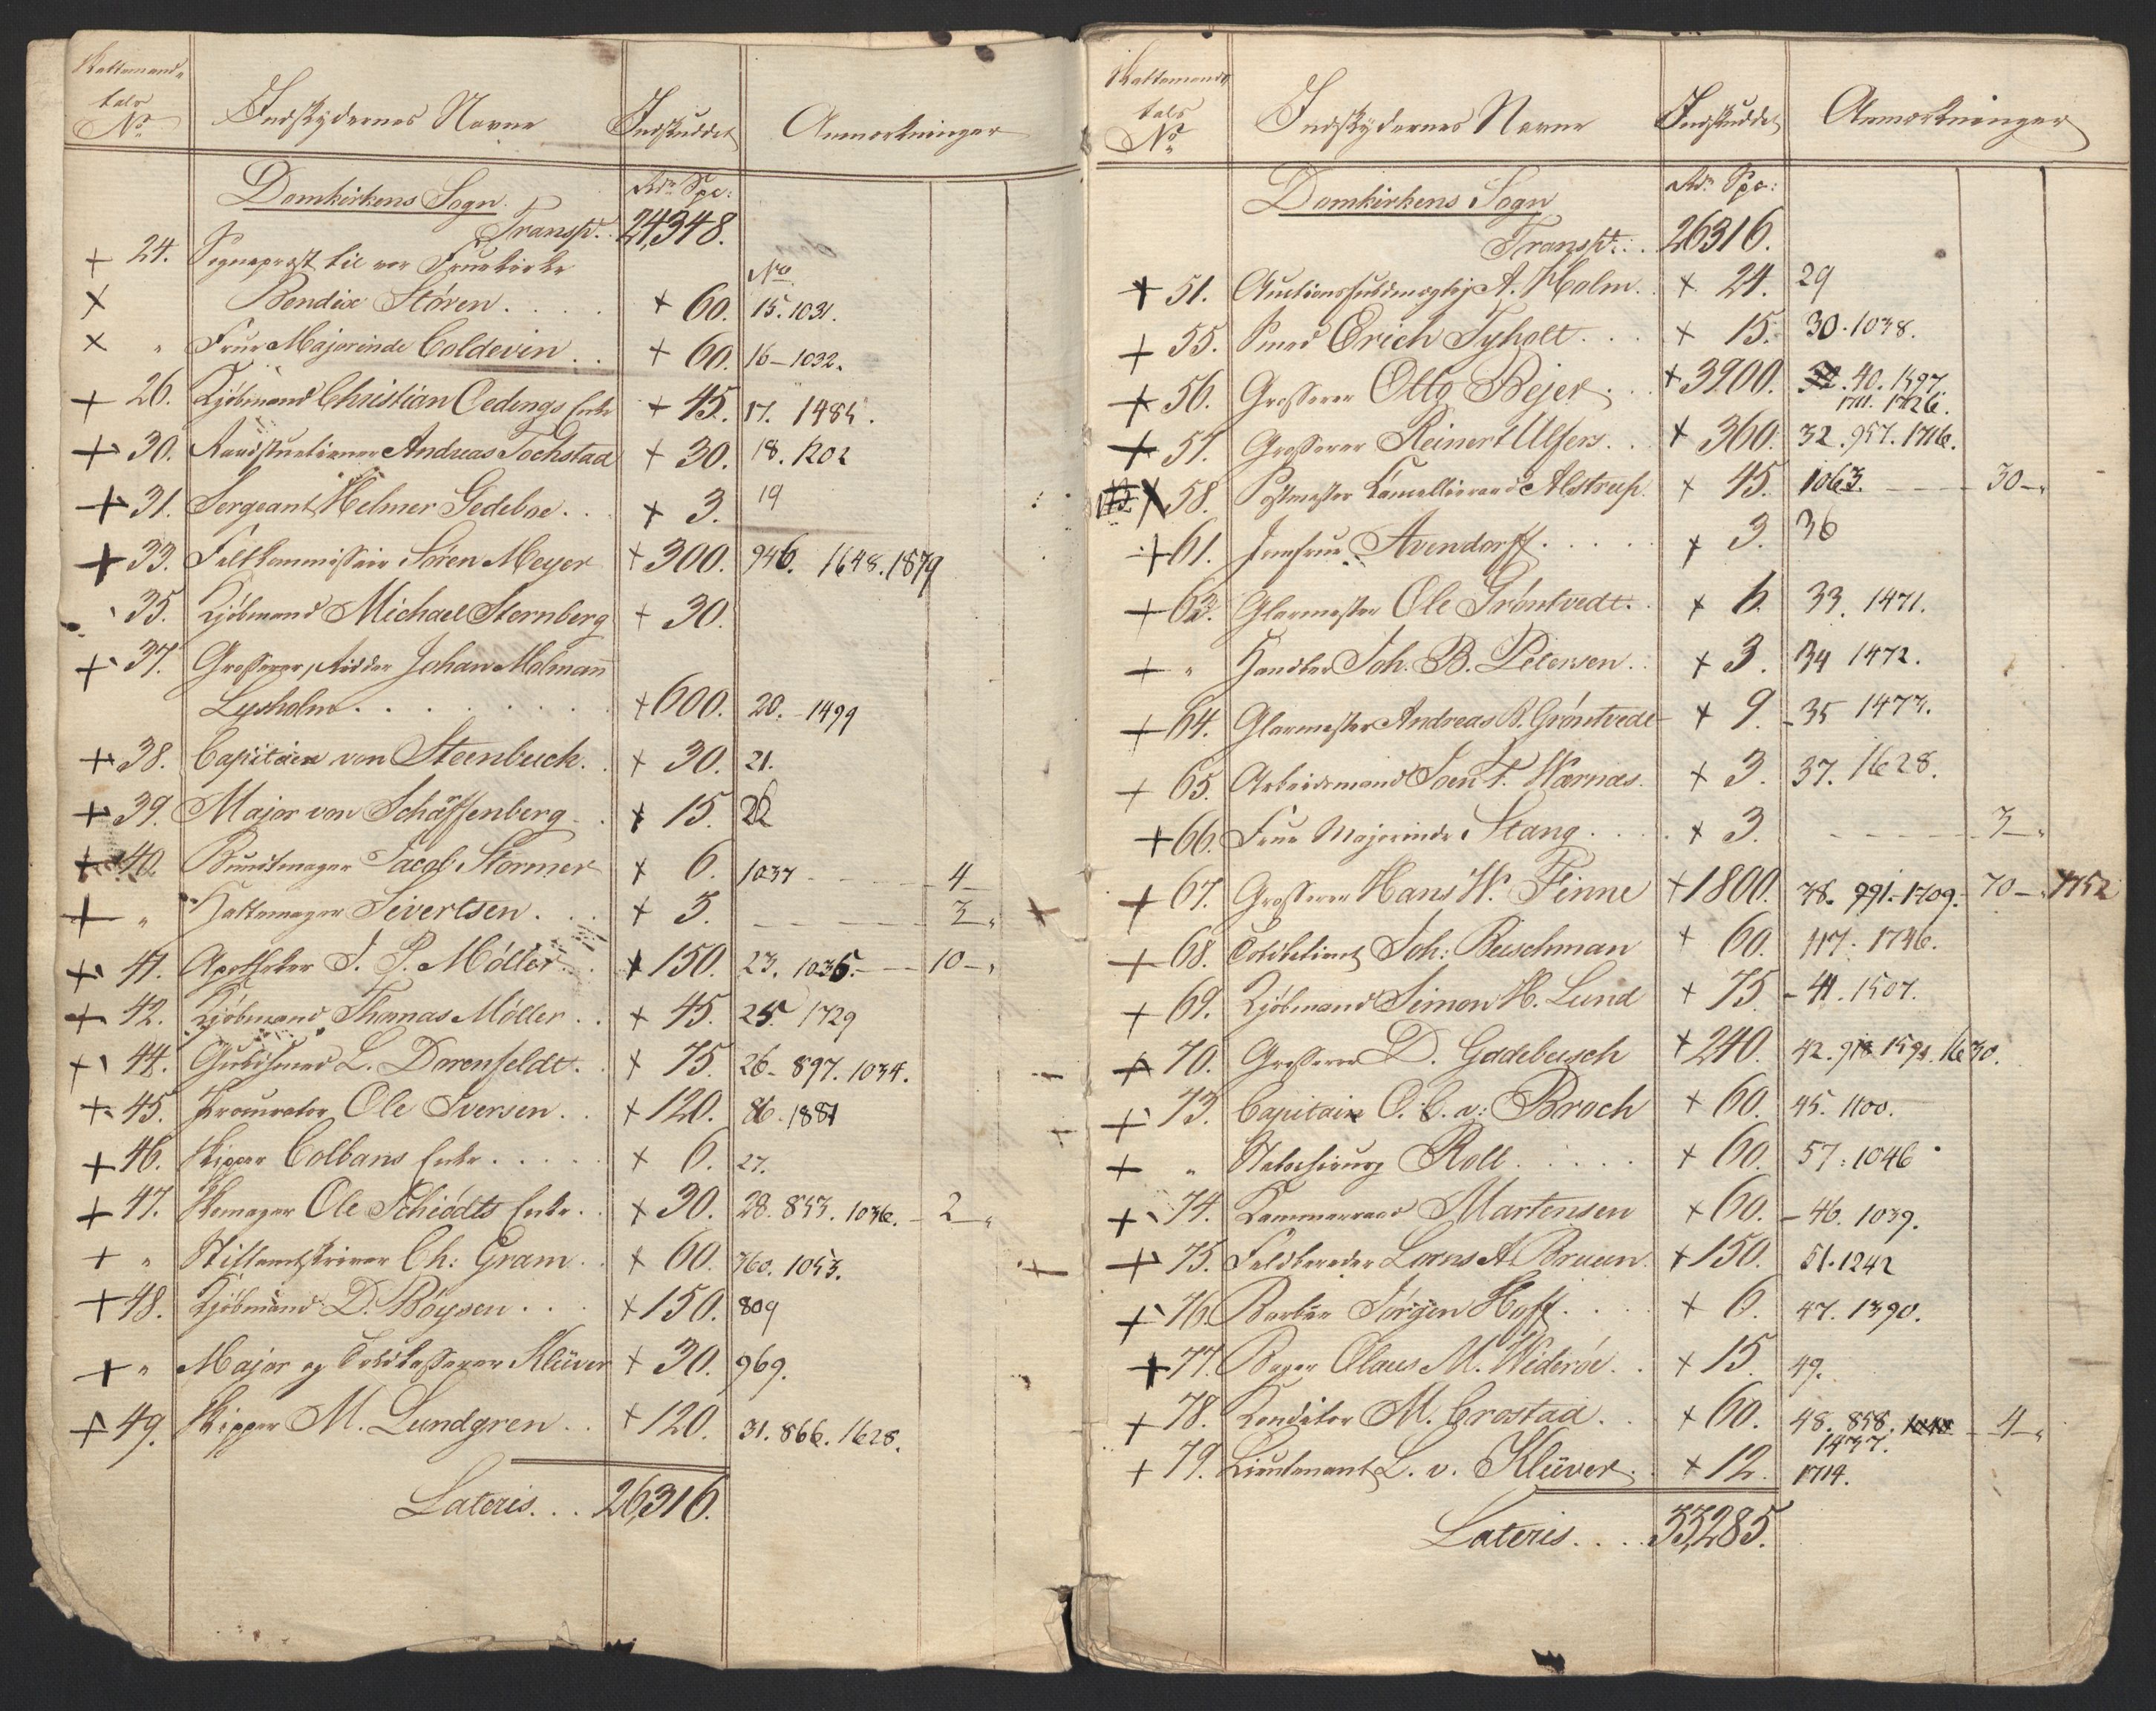 Skattemand-
tals
No
Indskydernes Navne
Indskuddet
Anmærkninger
Domkirkens Sogn.
Rdr Spc:
Transpt. 24,348.
+ 24. Sogneprest til vor Fruekirke
No
x Bendix Stören . . . . + 60. 15. 1031.
x " Frue Majorinde Coldevin . . + 60. 16 – 1032.
+ 26. Kjöbmand Christian Oedings Enke + 45. 17. 1485.
+ 30. Andreas Tochstad + 30. 18. 1202
+ 31. Sergeant Helmer Gedeboe . . + 3. 19
+ 33. Feltkommissair Sören Meyer + 300. 946. 1648. 1879
35. Kjöbmand Michael Sternberg + 30.
+ 37. Grosserer, Ridder Johan Molmann
Lysholm . . . . . . . + 600. 20. – 1499
+ 38. Capitain von Steenbuch . + 30. 21.
+ 39. Major von Schäffenberg . . + 15. 22
+ 40. Bundtmager Jacob Stormer + 6. 1037 – – – 4 –
+ " Hattemager Sivertsen . . . + 3. – – – 3 „
+ 41. Apotheker J. P. Möller . . + 150. 23. 1035. – – 10 – „
+ 42. Kjöbmand Thomas Möller . . + 45. 25. 1729
+ 44. Guldsmed L. Dorenfeldt . + 75. 26 – 897. 1034.
+ 45. Procurator Ole Iversen . . + 120. 86. 1881
+ 46. Skipper Colbans Enke . . . . + 6. 27.
+ 47. Skomager Ole Schiödts Enke . + 30. 28. 853. 1036. – 2 – „
+ " Stiftamtskriver Ch: Gram . . + 60. 760. 1053.
+ 48. Kjöbmand D. Böysen . . . + 150. 809
+ " Major og Toldkasserer Klüver + 30. 969.
+ 49. Skipper M. Lundgren . . + 120. 31. 866. 1628.
Lateris . . . 26,316.
Skattemands
tals
No
Indskydernes Navne
Indskuddet
Anmærkninger
Domkirkens Sogn
Rdr Spc:
Transpt: . . 26316.
+ 51. Auctionsfuldmægtig A. Holm . + 24. 29
+ 55. Smed Erich Tyholt . . . + 15. 30. 1038.
+ 56. Grosserer Otto Bejer . . + 3900. 40. 1597.
1711. 1726.
+ 57. Grosserer Reinert Ulfers . . + 360. 32. 957. 1716.
58. Postmester Kancellieraad Alstrup . + 45. 1063. – – – 30 – „
+ 61. Jomfrue Avendorff . . . . . + 3. 36
+ 63. Glarmester Ole Gröntvedt . + 6. 33. 1471.
+ " Handler Joh. B. Petersen . . + 3. 34 1472.
+ 64. Glarmester Andreas R. Gröntvedt + 9. – 35 1473.
+ 65. Arbeidsmand Soen T. Wærnæs . + 3. 37. 1628.
+ 66. Frue Majorinde Stang . . . . + 3. – – – 3 – „
+ 67. Grosserer Hans W. Finne + 1800. 38. 991. 1709. – 70 – „ 1752
+ 68. Toldbetient Joh: Buschman + 60. 117. 1746.
+ 69. Kjöbmand Simon H. Lund + 75 – 41. 1507.
+ 70. Grosserer D. Gadebusch + 240. 42. 918. 1591. 1630.
+ 73. Capitain O. C. v: Broch + 60. 45. 1100.
+ " Stabschirurg Roll . . . . . + 60. 57. 1046
+ 74. Kammerraad Martensen + 60. – 46. 1039.
+ 75. Feldbereder Lorns A. Bruun . + 150. 51. 1242
+ 76. Barbeer Jörgen Hoff . . . + 6. 47. 1390.
+ 77. Bager Olaus M. Wideröe . . + 15. 49.
+ 78. Konditor M. Grostad . . + 60. 48. 858. – 4 – „
1437.
+ 79. Lieutenant L. v. Klüver . . + 12. 1714.
Lateris . . . . 33,285.